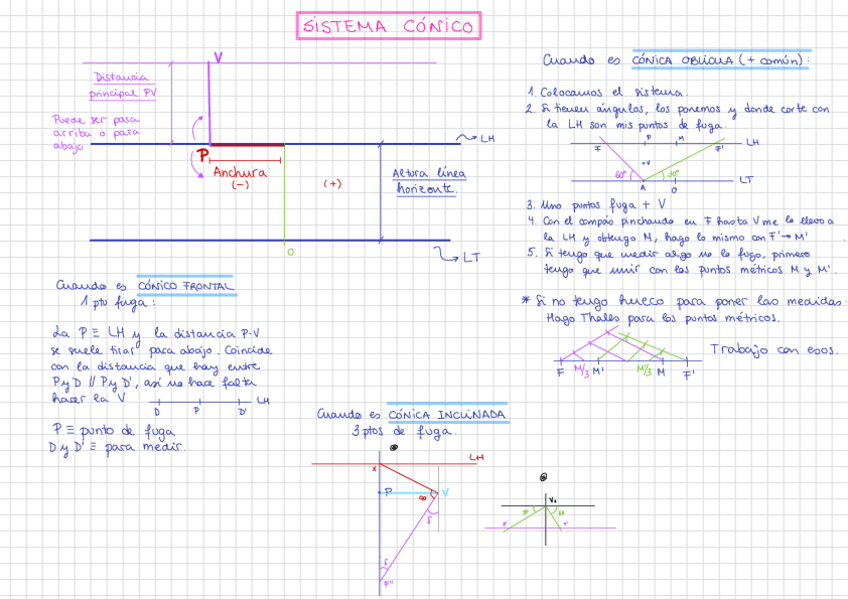 SISTEMA CÓNICO
V
Distancia
principal PV
Puede ser para
arriba o para
abajo
LH
P
Anchura
(-)
(+)
Altura línea
horizonte.
O
LT
Cuando es CÓNICO FRONTAL
1 pto fuga:
La P ≡ LH y la distancia P-V
se suele tirar para abajo. Coincide
con la distancia que hay entre
P y D // P y D', así no hace falta
hacer la V
LH
D P D'
P ≡ punto de fuga
D y D' ≡ para medir.
Cuando es CÓNICA OBLICUA (+ común):
1. Colocamos el sistema.
2. Si tienen ángulos, los ponemos y donde corte con
la LH son mis puntos de fuga.
F P M F' LH
V
60°
A O LT
3. Uno puntos fuga + V
4. Con el compás pinchando en F hasta V me lo llevo a
la LH y obtengo M, hago lo mismo con F' → M'
5. Si tengo que medir algo no lo fugo, primero
tengo que unir con los puntos métricos M y M'.
* Si no tengo hueco para poner las medidas.
Hago Thales para los puntos métricos.
Trabajo con esos.
F M/3 M' M/3 M F'
Cuando es CÓNICA INCLINADA
3 ptos de fuga.
LH
X
P V
90
F"